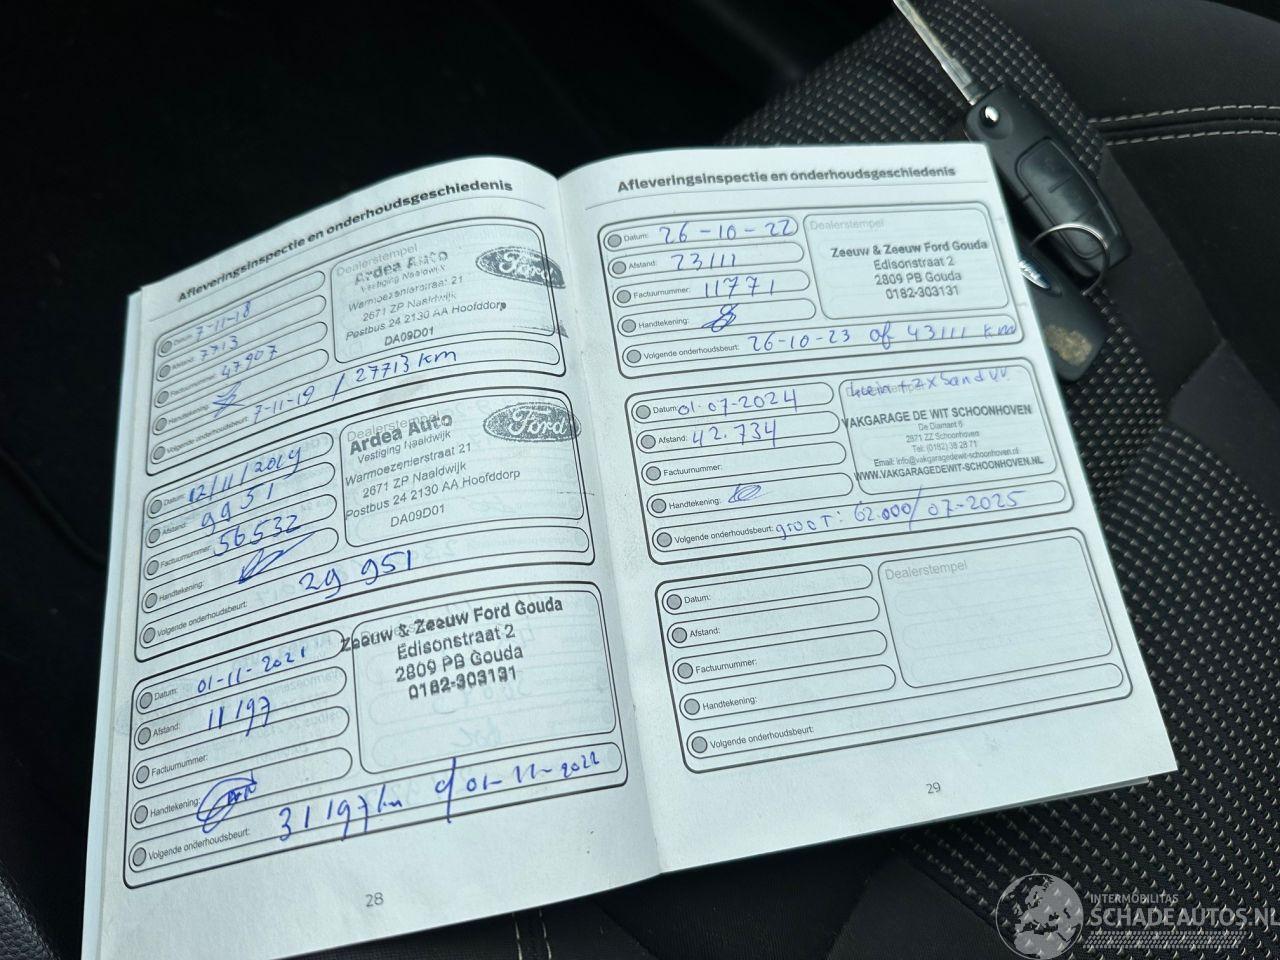 Afleveringsinspectie en onderhoudsgeschiedenis
Datum: 7-11-18
Afstand: 7713
Factuurnummer: 47907
Handtekening:
Volgende onderhoudsbeurt: 7-11-19 / 27713 km
Dealerstempel
Ardea Auto
Vestiging Naaldwijk
Warmoezenierstraat 21
2671 ZP Naaldwijk
Postbus 24 2130 AA Hoofddorp
DA09D01
Ford
Datum: 12/11/2019
Afstand: 9951
Factuurnummer: 56532
Handtekening:
Volgende onderhoudsbeurt: 29 951
Dealerstempel
Ardea Auto
Vestiging Naaldwijk
Warmoezenierstraat 21
2671 ZP Naaldwijk
Postbus 24 2130 AA Hoofddorp
DA09D01
Ford
Datum: 01-11-2021
Afstand: 11197
Factuurnummer:
Handtekening:
Volgende onderhoudsbeurt: 31197 km of 01-11-2022
Zeeuw & Zeeuw Ford Gouda
Edisonstraat 2
2809 PB Gouda
0182-303131
28
Afleveringsinspectie en onderhoudsgeschiedenis
Datum: 26-10-22
Afstand: 23111
Factuurnummer: 11771
Handtekening:
Volgende onderhoudsbeurt: 26-10-23 of 43111 km
Dealerstempel
Zeeuw & Zeeuw Ford Gouda
Edisonstraat 2
2809 PB Gouda
0182-303131
Datum: 01-07-2024
Afstand: 42.734
Factuurnummer:
Handtekening:
Volgende onderhoudsbeurt: groot: 62.000/07-2025
klein + 2x band VV.
VAKGARAGE DE WIT SCHOONHOVEN
De Diamant 6
2871 ZZ Schoonhoven
Tel: (0182) 38 28 71
Email: info@vakgaragedewit-schoonhoven.nl
WWW.VAKGARAGEDEWIT-SCHOONHOVEN.NL
Datum:
Afstand:
Factuurnummer:
Handtekening:
Volgende onderhoudsbeurt:
Dealerstempel
29
INTERMOBILITAS
SCHADEAUTOS.NL